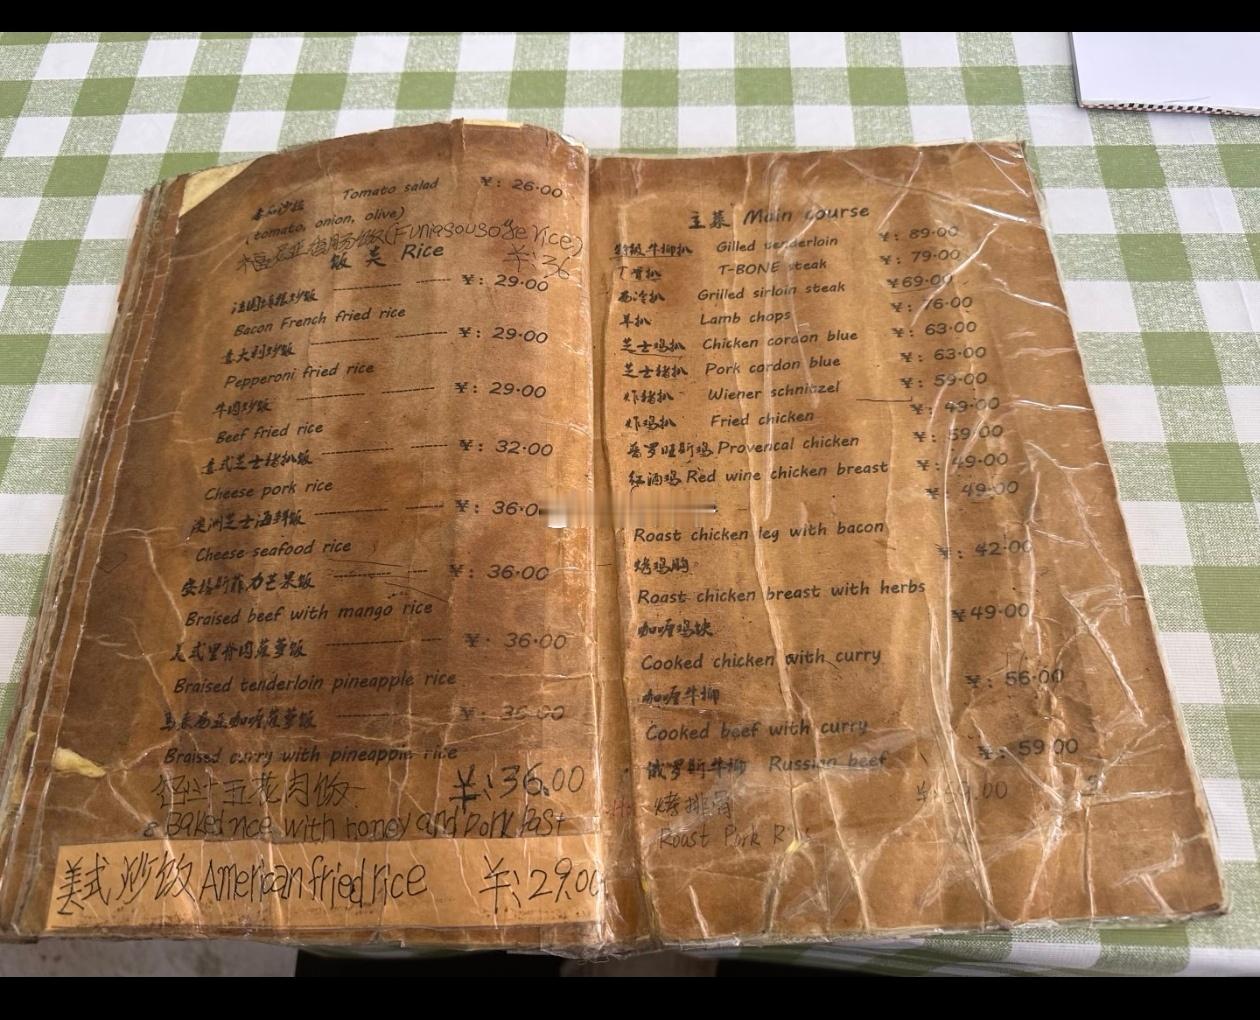 番茄沙拉 Tomato salad ¥: 26.00
(tomato, onion, olive)
(Funiasousage rice)
饭 类 Rice ¥:36
法国培根炒饭 ¥: 29.00
Bacon French fried rice
意大利炒饭 ¥: 29.00
Pepperoni fried rice
牛肉炒饭 ¥: 29.00
Beef fried rice
意式芝士猪扒饭 ¥: 32.00
Cheese pork rice
澳洲芝士海鲜饭 ¥: 36.0
Cheese seafood rice
安格斯菲力芒果饭 ¥: 36.00
Braised beef with mango rice
美式里脊肉菠萝饭 ¥: 36.00
Braised tenderloin pineapple rice
马来西亚咖喱菠萝饭 ¥: 36.00
Braised curry with pineapple rice
五花肉饭 ¥:36.00
Baked rice with honey and pork
美式炒饭 American fried rice ¥:29.00
主菜 Main course
特级牛柳扒 Gilled tenderloin ¥: 89.00
T骨扒 T-BONE steak ¥: 79.00
西冷扒 Grilled sirloin steak ¥69.00
羊扒 Lamb chops ¥: 76.00
芝士鸡扒 Chicken cordon blue ¥: 63.00
芝士猪扒 Pork cordon blue ¥: 63.00
炸猪扒 Wiener schnitzel ¥: 59.00
炸鸡扒 Fried chicken ¥: 49.00
普罗旺斯鸡 Provencal chicken ¥: 59.00
红酒鸡 Red wine chicken breast ¥: 49.00
¥: 49.00
Roast chicken leg with bacon
烤鸡胸 ¥: 42.00
Roast chicken breast with herbs
咖喱鸡块 ¥49.00
Cooked chicken with curry
咖喱牛柳 ¥: 56.00
Cooked beef with curry
俄罗斯牛柳 Russian beef ¥: 59.00
烤排骨
Roast Pork